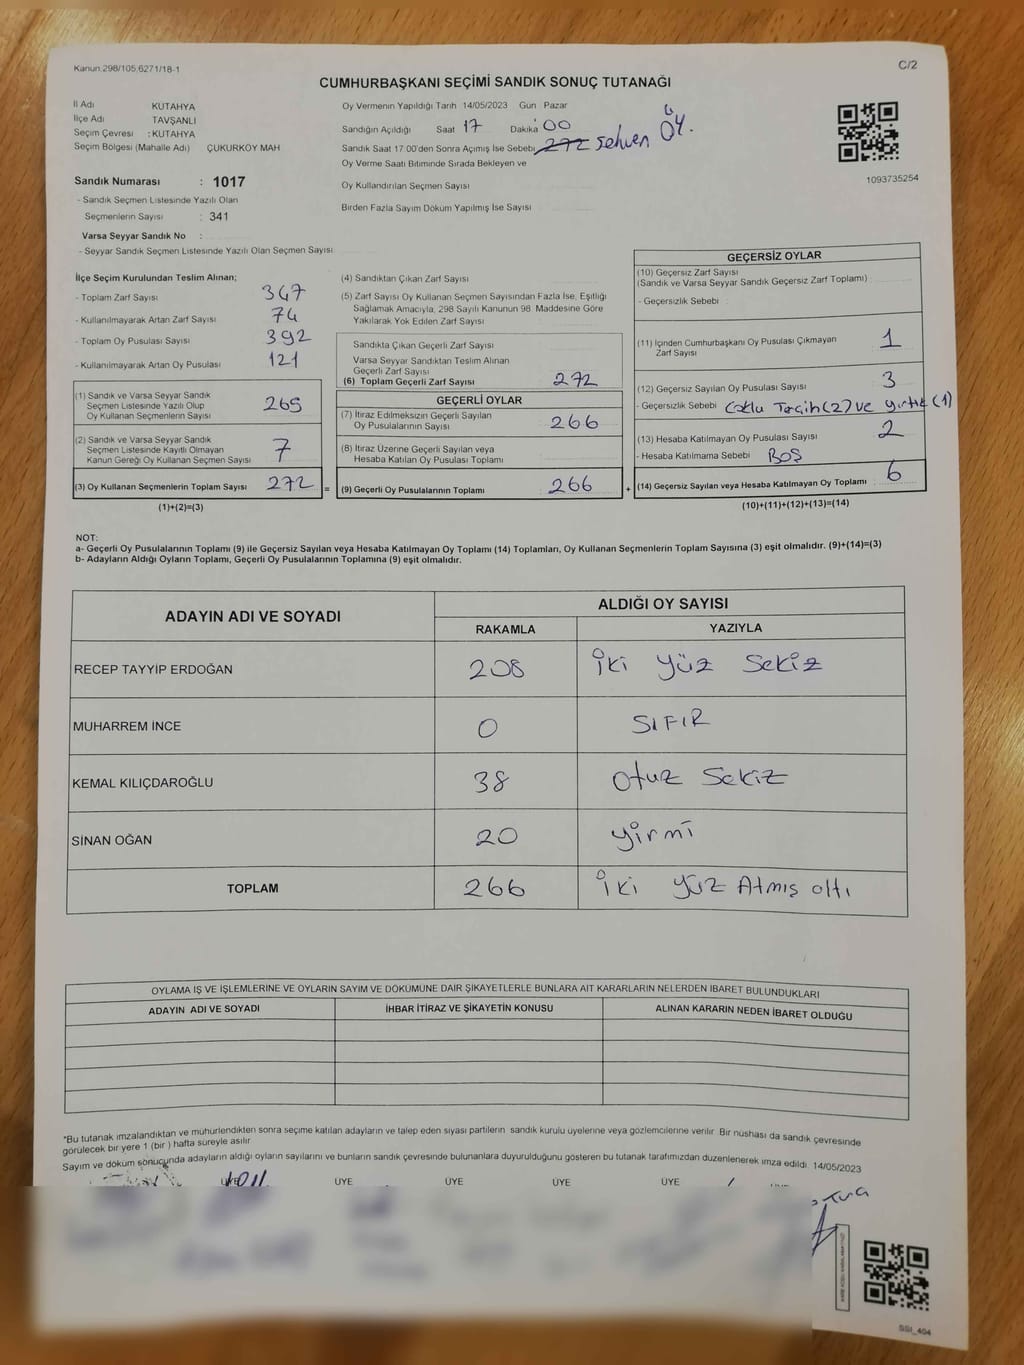 Kanun:298/105,6271/18-1
C/2
CUMHURBAŞKANI SEÇİMİ SANDIK SONUÇ TUTANAĞI
İl Adı KÜTAHYA
İlçe Adı TAVŞANLI
Seçim Çevresi : KÜTAHYA
Seçim Bölgesi (Mahalle Adı) ÇUKURKÖY MAH
Sandık Numarası : 1017
- Sandık Seçmen Listesinde Yazılı Olan
Seçmenlerin Sayısı : 341
Varsa Seyyar Sandık No :
- Seyyar Sandık Seçmen Listesinde Yazılı Olan Seçmen Sayısı
Oy Vermenin Yapıldığı Tarih 14/05/2023 Gün : Pazar
Sandığın Açıldığı Saat 17 Dakika 00
Sandık Saat 17:00'den Sonra Açılmış İse Sebebi 272 sehven
Oy Verme Saati Bitiminde Sırada Bekleyen ve
Oy Kullandırılan Seçmen Sayısı
Birden Fazla Sayım Döküm Yapılmış İse Sayısı
1093735254
İlçe Seçim Kurulundan Teslim Alınan;
- Toplam Zarf Sayısı 347
- Kullanılmayarak Artan Zarf Sayısı 74
- Toplam Oy Pusulası Sayısı 392
- Kullanılmayarak Artan Oy Pusulası 121
(1) Sandık ve Varsa Seyyar Sandık
Seçmen Listesinde Yazılı Olup
Oy Kullanan Seçmenlerin Sayısı 265
(2) Sandık ve Varsa Seyyar Sandık
Seçmen Listesinde Kayıtlı Olmayan
Kanun Gereği Oy Kullanan Seçmen Sayısı 7
(3) Oy Kullanan Seçmenlerin Toplam Sayısı 272 =
(1)+(2)=(3)
(4) Sandıktan Çıkan Zarf Sayısı
(5) Zarf Sayısı Oy Kullanan Seçmen Sayısından Fazla İse, Eşitliği
Sağlamak Amacıyla, 298 Sayılı Kanunun 98. Maddesine Göre
Yakılarak Yok Edilen Zarf Sayısı
Sandıkta Çıkan Geçerli Zarf Sayısı
Varsa Seyyar Sandıktan Teslim Alınan
Geçerli Zarf Sayısı
(6) Toplam Geçerli Zarf Sayısı 272
GEÇERLİ OYLAR
(7) İtiraz Edilmeksizin Geçerli Sayılan
Oy Pusulalarının Sayısı 266
(8) İtiraz Üzerine Geçerli Sayılan veya
Hesaba Katılan Oy Pusulası Toplamı
(9) Geçerli Oy Pusulalarının Toplamı 266 +
GEÇERSİZ OYLAR
(10) Geçersiz Zarf Sayısı
(Sandık ve Varsa Seyyar Sandık Geçersiz Zarf Toplamı)
- Geçersizlik Sebebi
(11) İçinden Cumhurbaşkanı Oy Pusulası Çıkmayan
Zarf Sayısı 1
(12) Geçersiz Sayılan Oy Pusulası Sayısı 3
- Geçersizlik Sebebi Çoklu Tercih(2) ve yırtık (1)
(13) Hesaba Katılmayan Oy Pusulası Sayısı 2
- Hesaba Katılmama Sebebi BOŞ
(14) Geçersiz Sayılan veya Hesaba Katılmayan Oy Toplamı 6
(10)+(11)+(12)+(13)=(14)
NOT:
a- Geçerli Oy Pusulalarının Toplamı (9) ile Geçersiz Sayılan veya Hesaba Katılmayan Oy Toplamı (14) Toplamları, Oy Kullanan Seçmenlerin Toplam Sayısına (3) eşit olmalıdır. (9)+(14)=(3)
b- Adayların Aldığı Oyların Toplamı, Geçerli Oy Pusulalarının Toplamına (9) eşit olmalıdır.
ADAYIN ADI VE SOYADI
ALDIĞI OY SAYISI
RAKAMLA YAZIYLA
RECEP TAYYİP ERDOĞAN 208 iki yüz sekiz
MUHARREM İNCE 0 SIFIR
KEMAL KILIÇDAROĞLU 38 otuz sekiz
SİNAN OĞAN 20 yirmi
TOPLAM 266 iki yüz Atmış altı
OYLAMA İŞ VE İŞLEMLERİNE VE OYLARIN SAYIM VE DÖKÜMÜNE DAİR ŞİKAYETLERLE BUNLARA AİT KARARLARIN NELERDEN İBARET BULUNDUKLARI
ADAYIN ADI VE SOYADI İHBAR İTİRAZ VE ŞİKAYETİN KONUSU ALINAN KARARIN NEDEN İBARET OLDUĞU
*Bu tutanak imzalandıktan ve mühürlendikten sonra seçime katılan adayların ve talep eden siyasi partilerin sandık kurulu üyelerine veya gözlemcilerine verilir. Bir nüshası da sandık çevresinde
görülecek bir yere 1 (bir) hafta süreyle asılır.
Sayım ve döküm sonucunda adayların aldığı oyların sayılarını ve bunların sandık çevresinde bulunanlara duyurulduğunu gösteren bu tutanak tarafımızdan düzenlenerek imza edildi. 14/05/2023
ÜYE ÜYE ÜYE ÜYE ÜYE
SSI_404